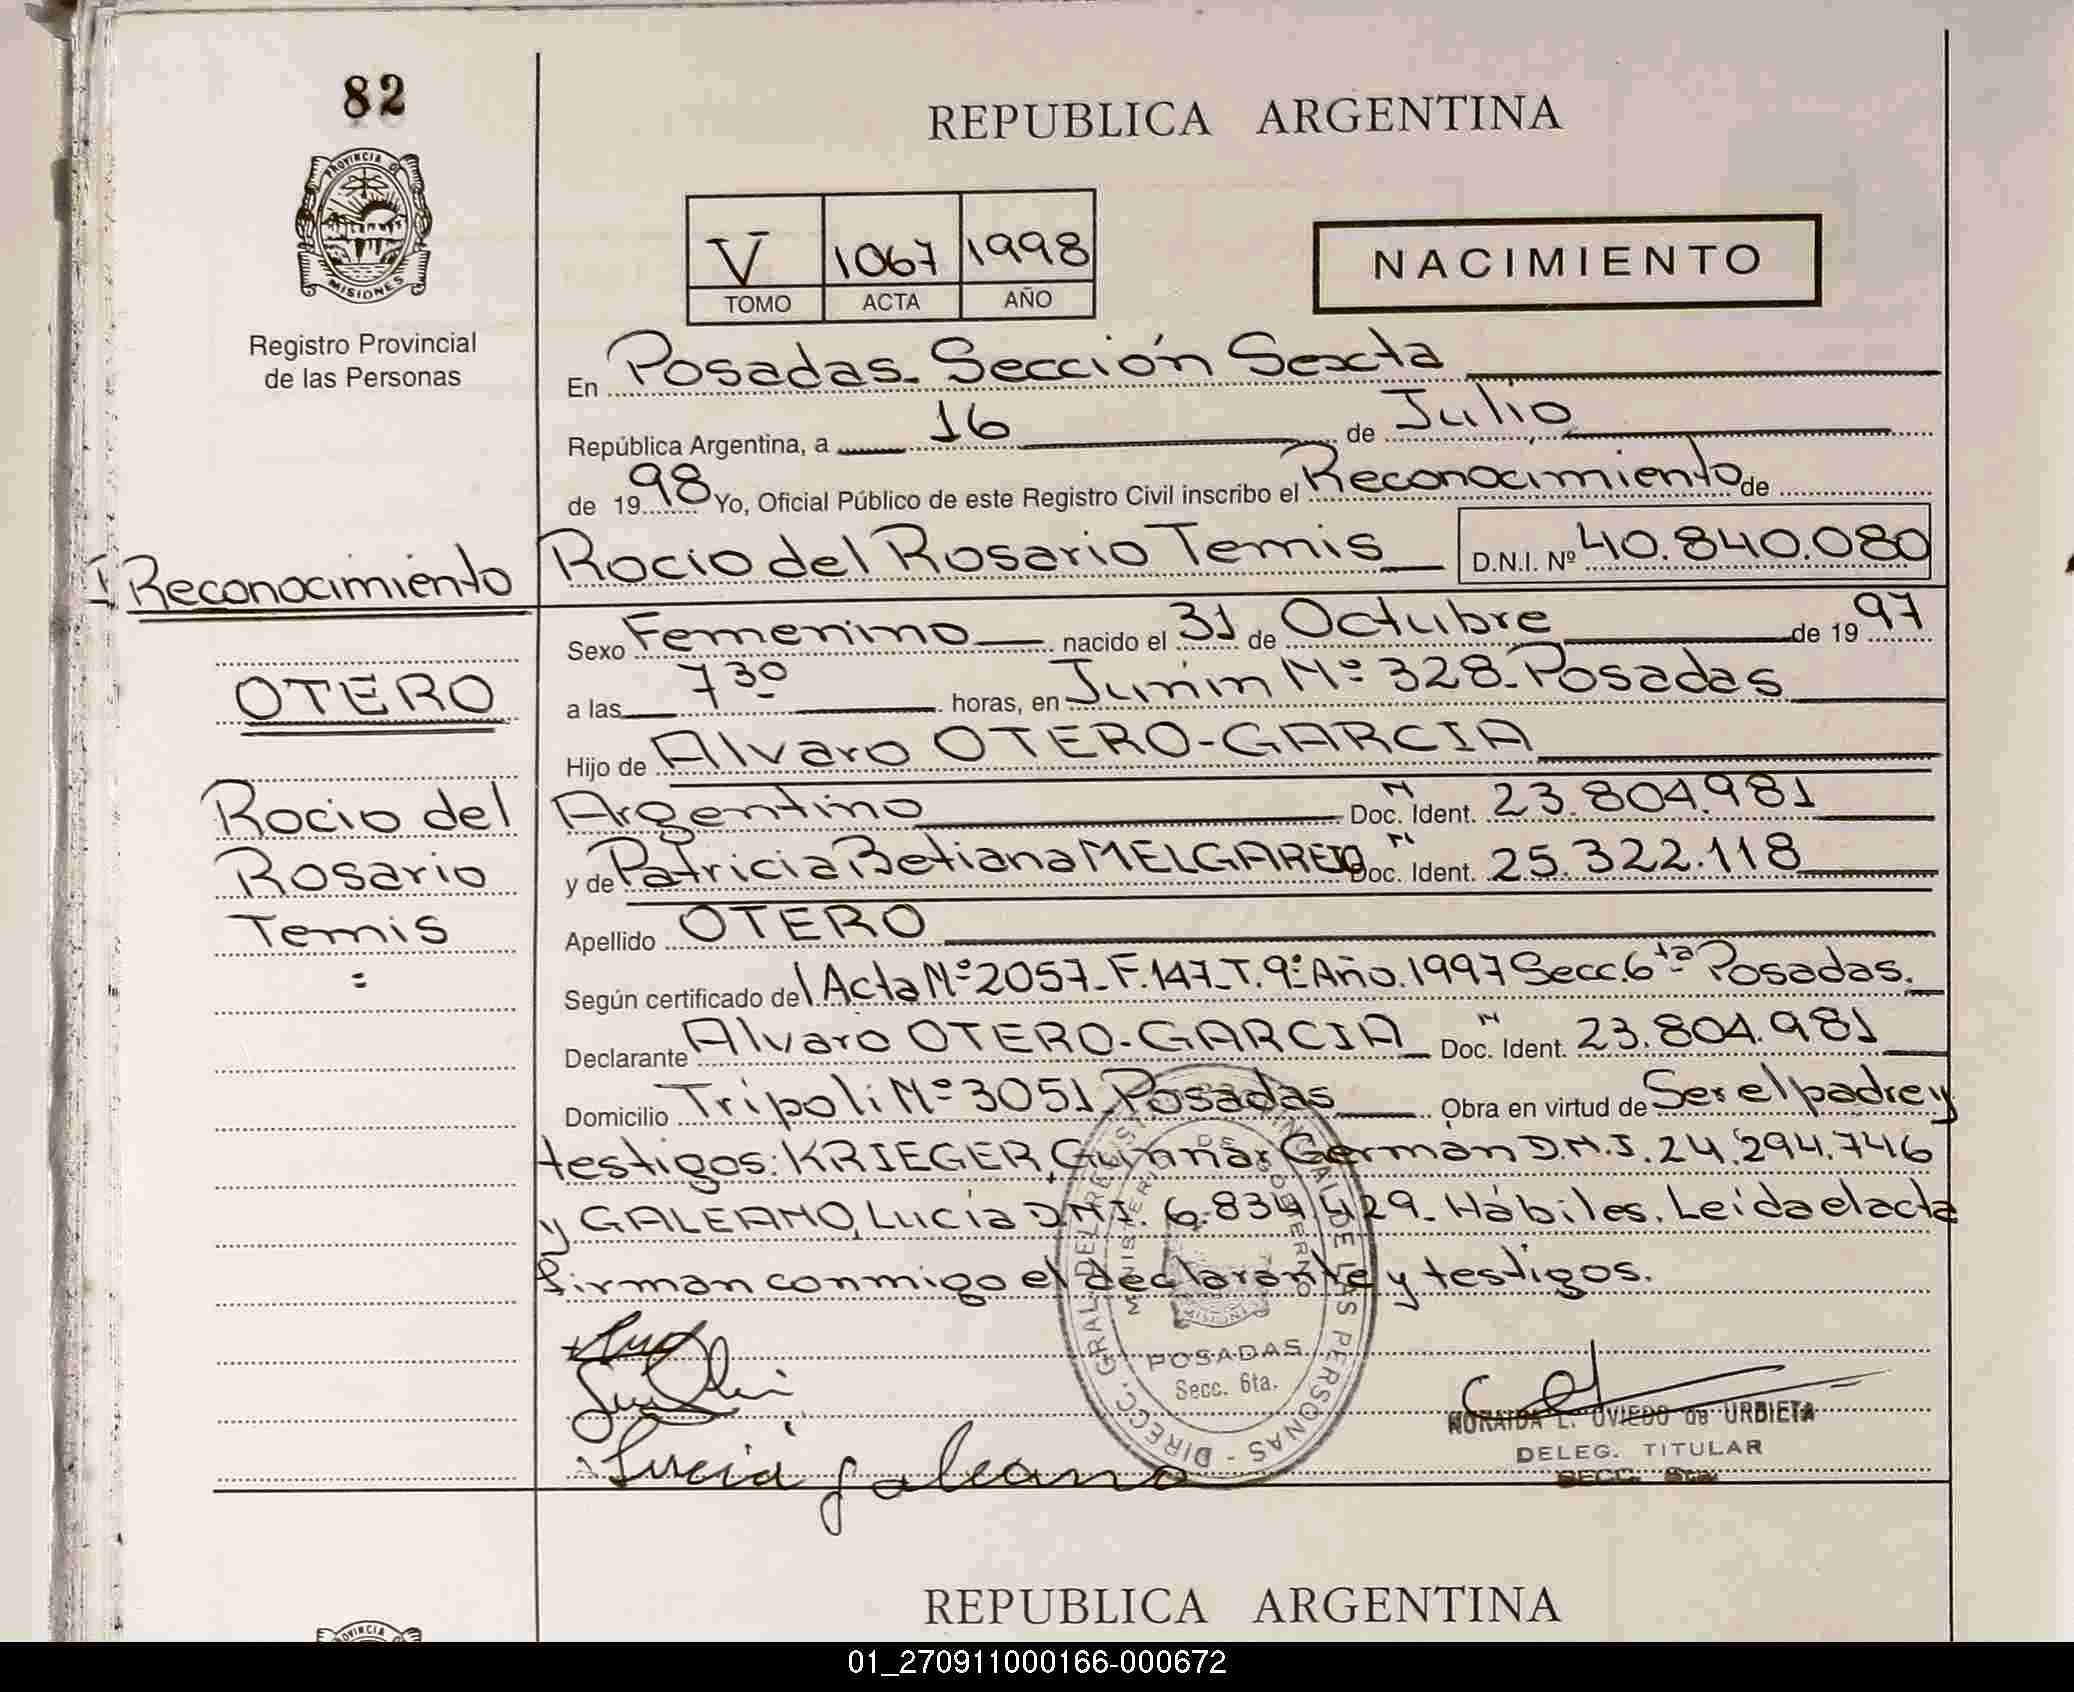 82
REPUBLICA ARGENTINA
PROVINCIA D
MISIONES
Registro Provincial
de las Personas
V 1067 1998
TOMO ACTA AÑO
NACIMIENTO
En Posadas. Sección Sexta
República Argentina, a 16 de Julio
de 1998 Yo, Oficial Público de este Registro Civil inscribo el Reconocimiento de
Rocio del Rosario Temis D.N.I. Nº 40.840.080
Sexo Femenino nacido el 31 de Octubre de 1997
a las 7 30 horas, en Junin Nº 328. Posadas
Hijo de Alvaro OTERO-GARCIA
Argentino Doc. N Ident. 23.804.981
y de Patricia Betiana MELGAREJO Doc. N Ident. 25.322.118
Apellido OTERO
Según certificado del Acta Nº 2057. F. 147. T. 9º Año. 1997 Secc. 6ta Posadas.
Declarante Alvaro OTERO-GARCIA Doc. N Ident. 23.804.981
Domicilio Tripoli Nº 3051. Posadas Obra en virtud de Ser el padre y
testigos: KRIEGER, Gunnar Germán D.N.I. 24.294.746
y GALEANO, Lucía D.N.I. 6.834.429. Hábiles. Leída el acta
firman conmigo el declarante y testigos.
I Reconocimiento
OTERO
Rocio del
Rosario
Temis
=
DIRECC. GRAL. DEL REGIST PROVINCIAL DE LAS PERSONAS
MINISTERIO DE GOBIERNO
MISIONES
POSADAS
Secc. 6ta.
Lucia galeano
NORAIDA L. OVIEDO de URBIETA
DELEG. TITULAR
SECC. 6ta
REPUBLICA ARGENTINA
PROVINCIA
01_270911000166-000672